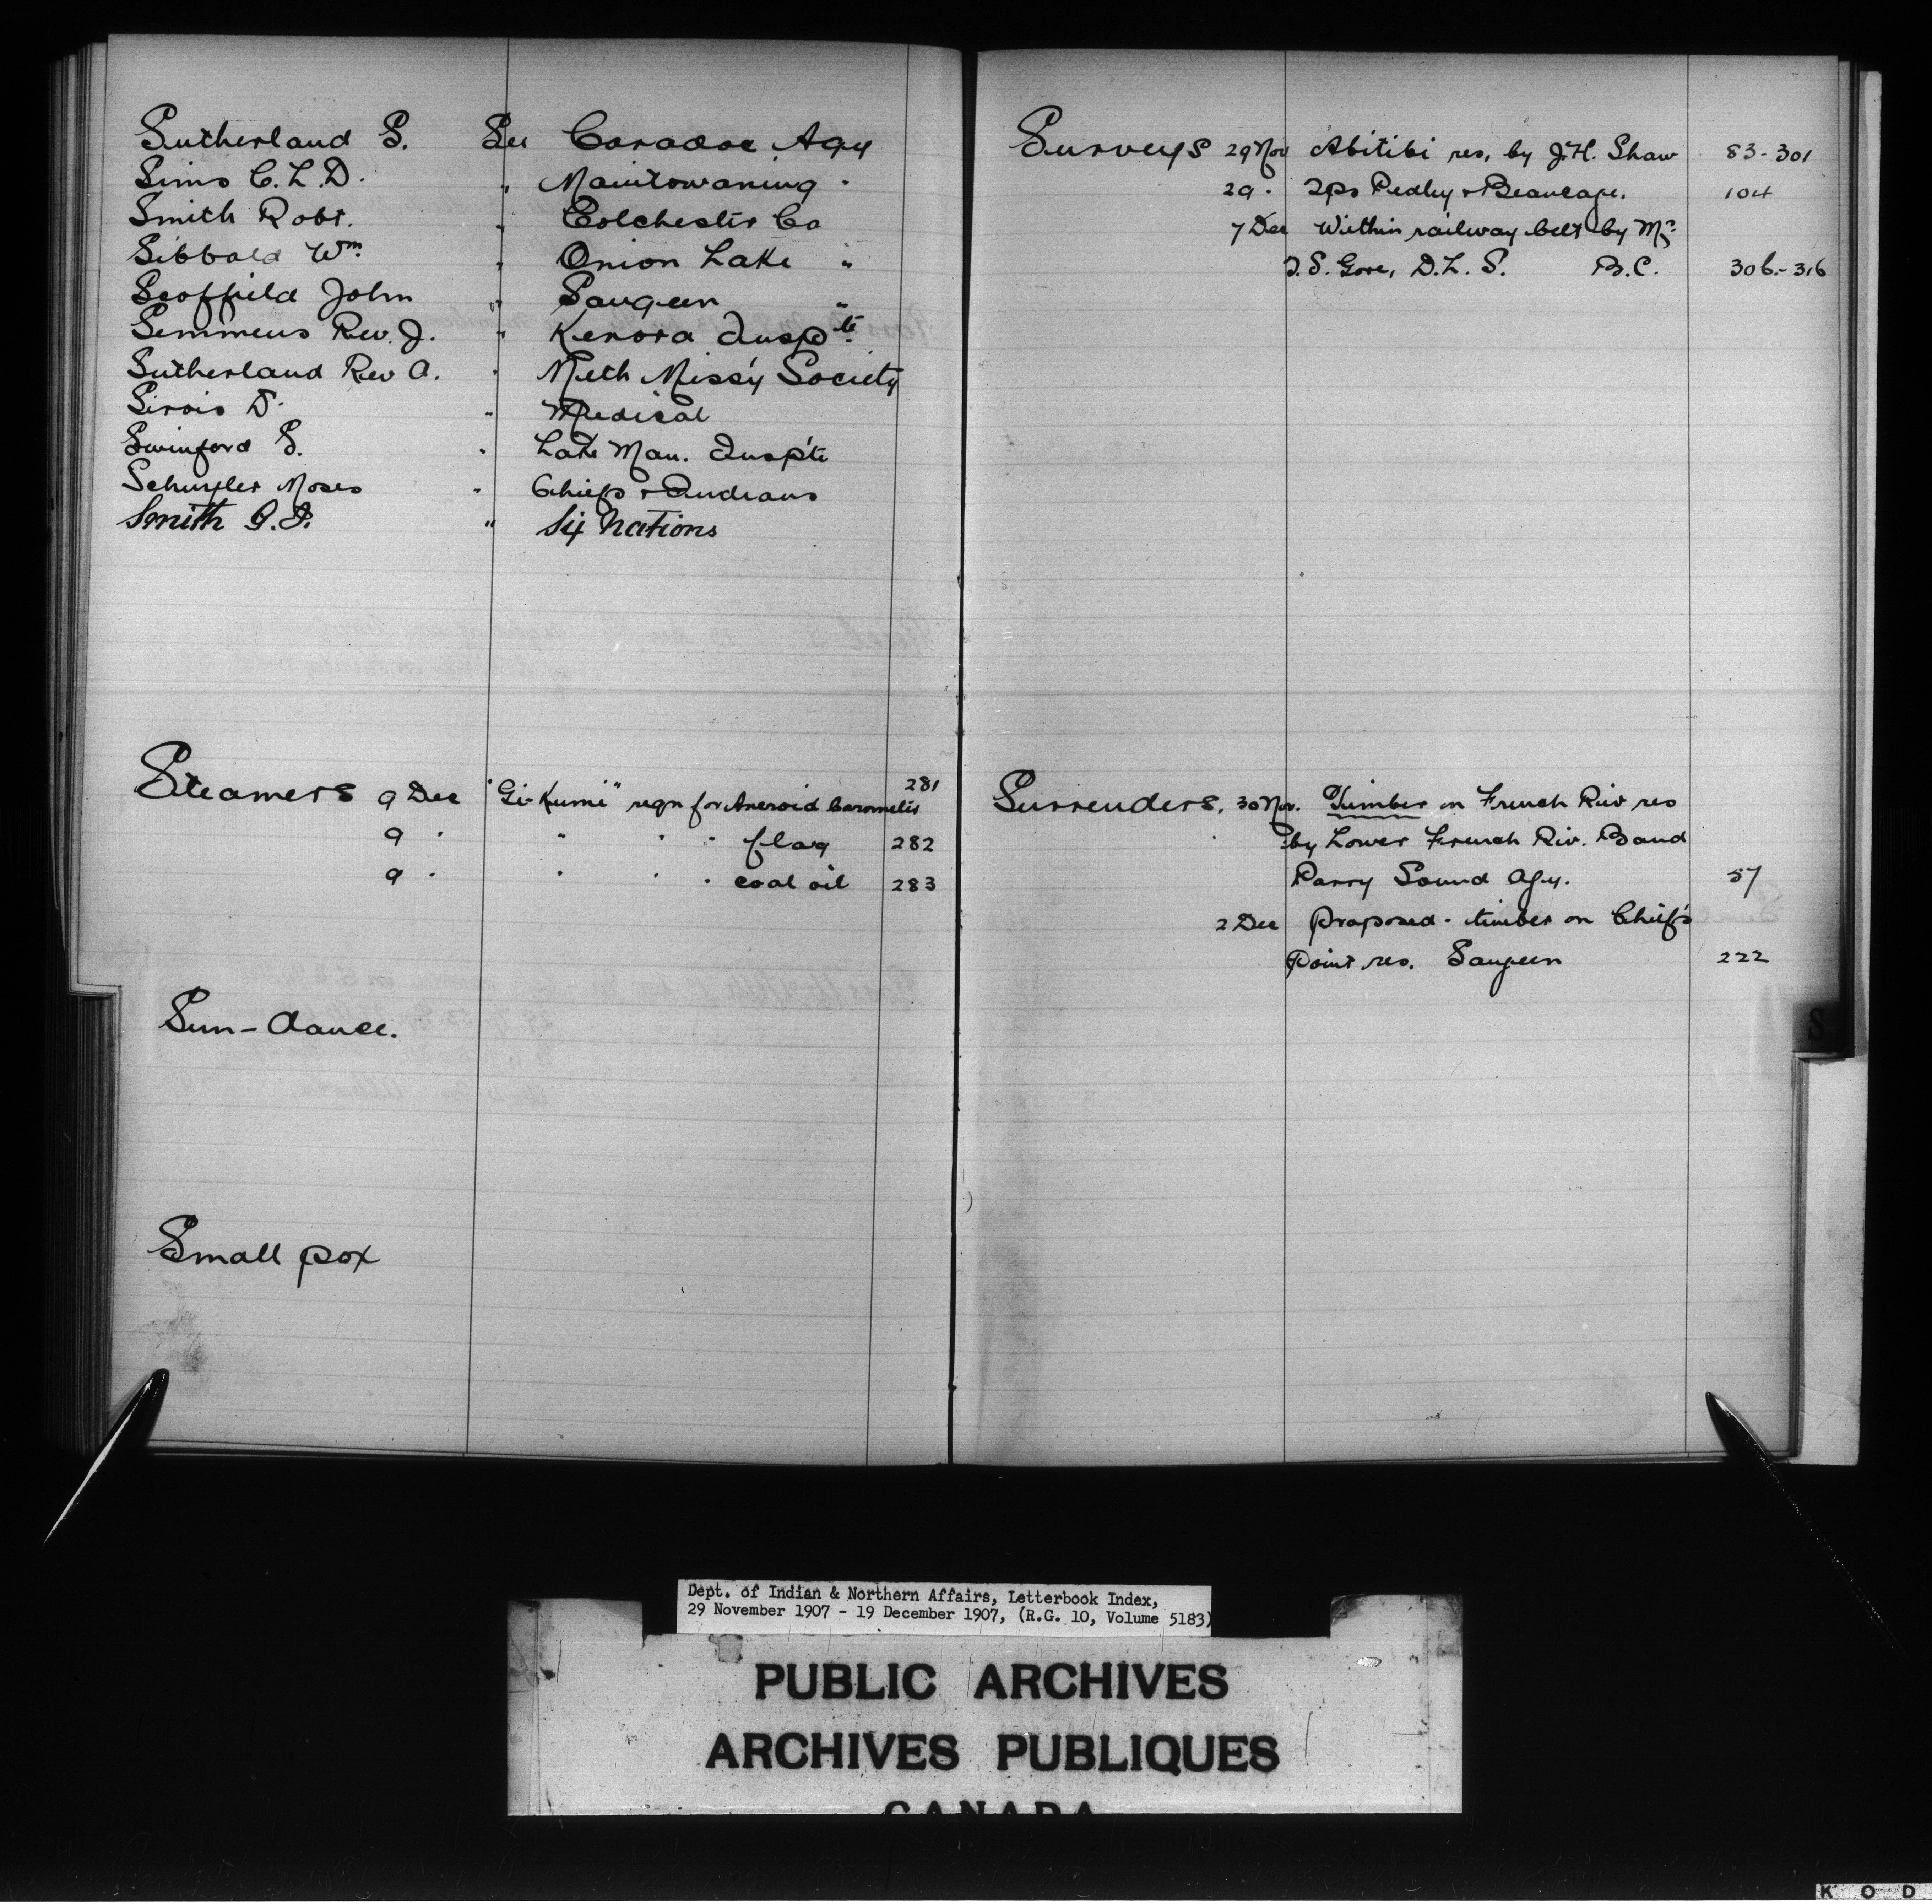 Sutherland S. See Caradoc Agy
Sims C. L. D. " Manitowaning "
Smith Robt. " Colchester Co
Sibbald Wm " Onion Lake "
Scoffield John " Saugeen "
Semmens Rev. J. " Kenora Insp'te
Sutherland Rev A. " Meth Miss'y Society
Sirois D. " Medical
Swinford S. " Lake Man. Insp'te
Schuyler Moses " Chiefs & Indians
Smith G. D. " Six Nations
Steamers 9 Dec "Gi-Kumi" reqn for Aneroid barometer 281
9 " " " " flag 282
9 " " " " coal oil 283
Sun-dance.
Small pox
Surveys 29 Nov Abitibi res. by J.H. Shaw 83-301
29 " Tps Pedley & Beaucage. 104
7 Dec Within railway belt by Mr.
T. S. Gore, D.L.S. B.C. 306-316
Surrenders. 30 Nov. Timber on French Riv res
by Lower French Riv. Band
Parry Sound Agy. 57
2 Dec Proposed - timber on Chief's
Point res. Saugeen 222
S
Dept. of Indian & Northern Affairs, Letterbook Index,
29 November 1907 - 19 December 1907, (R.G. 10, Volume 5183)
PUBLIC ARCHIVES
ARCHIVES PUBLIQUES
CANADA
K O D